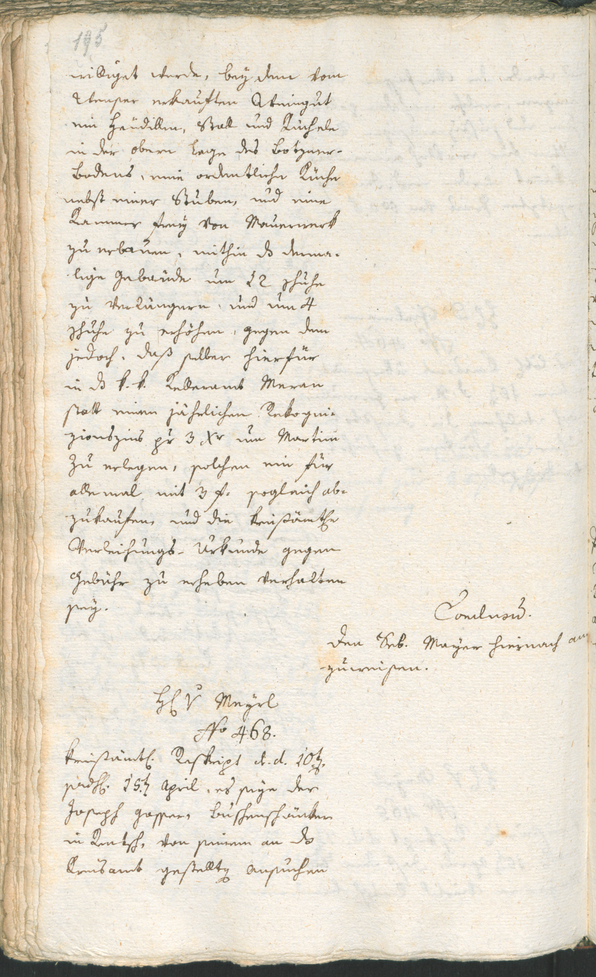 195
williget werde, bey dem vom
Steiner erkauften Weingut
ein Häuslen, Stall und Kuchele
in der obern Lage des Botzner-
Bodens, eine ordentliche Küche
nebst einer Stuben, und eine
Kammer freÿ von Mauerwerk
zu erbauen, mithin ds derma-
lige Gebäude um 12 Schuhe
zu verlängern, und um 4
Schuhe zu erhöhen, gegen dem
jedoch, daß selber hierfür
in ds k. k. Kelleramt Meran
statt einen jährlichen Rekogni-
zionszins pr 3 Xr um Martini
zu erlegen, solchen ein für
allemal mit 3 f. sogleich ab-
zukaufen, und die kreisämtle
Verleihungs-Urkunde gegen
Gebühr zu erheben verhalten
seÿ.
Conclusum.
Den Seb. Mayer hiernach an
zuweisen.
H V Meÿrl
No 468.
kreisämtl. Reskript d. d. 10t.
präs. 15t April, es seÿe der
Joseph Gasser, Buschenschänker
in Rentsch, von seinem an ds
Kreisamt gestellten Ansuchen